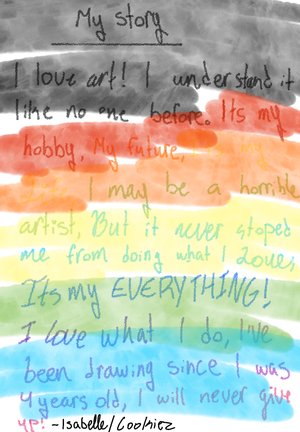 My story
I love art! I understand it
like no one before. Its my
hobby, My future, Its my
life. I may be a horrible
artist, But it never stoped
me from doing what I love,
Its my EVERYTHING!
I love what I do, I've
been drawing since I was
4 years old, I will never give
up! ~Isabelle/Cookiez